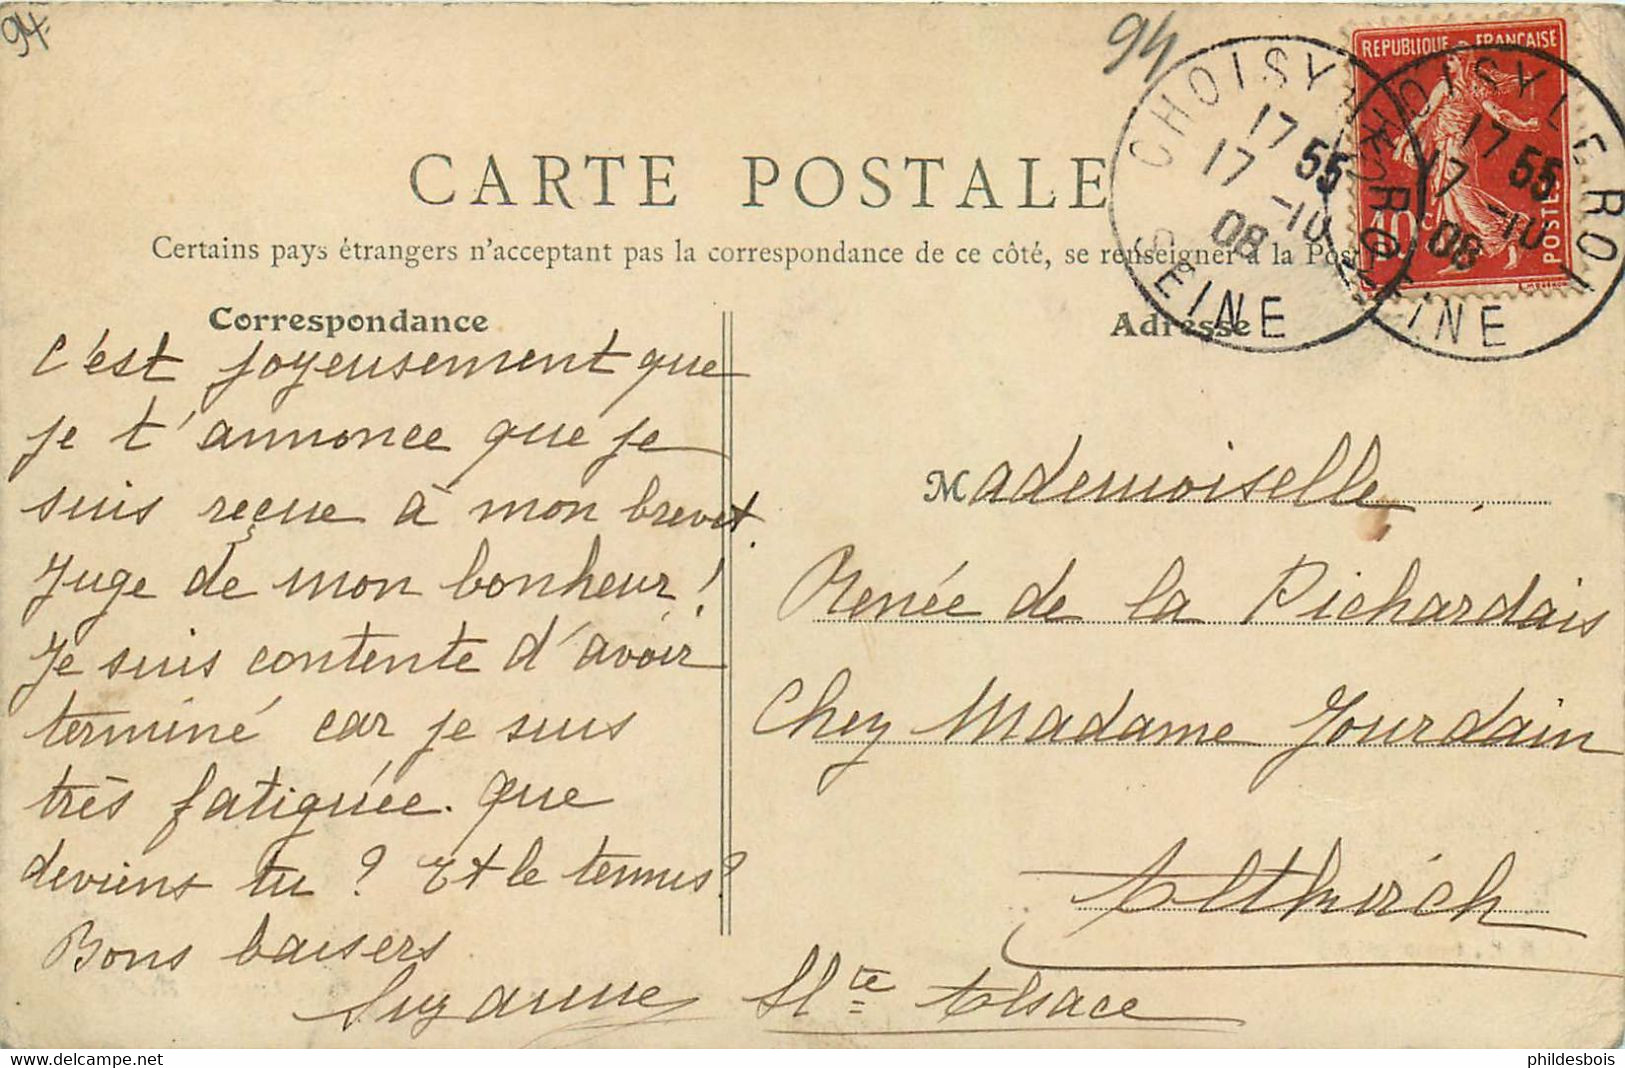 94
94
REPUBLIQUE FRANÇAISE
10 c
POSTES
CHOISY LE ROI
17 55
17 -10
08
SEINE
CHOISY LE ROI
17 55
17 -10
08
SEINE
CARTE POSTALE
Certains pays étrangers n'acceptant pas la correspondance de ce côté, se renseigner à la Poste
Correspondance
Adresse
c'est joyeusement que
je t'annonce que je
suis reçue à mon brevet.
Juge de mon bonheur !
Je suis contente d'avoir
terminé car je suis
très fatiguée. Que
deviens tu ? Et le tennis ?
Bons baisers
Suzanne
Mademoiselle
Renée de la Pichardais
Chez Madame Jourdain
Altkirch
Hte Alsace
phildesbois